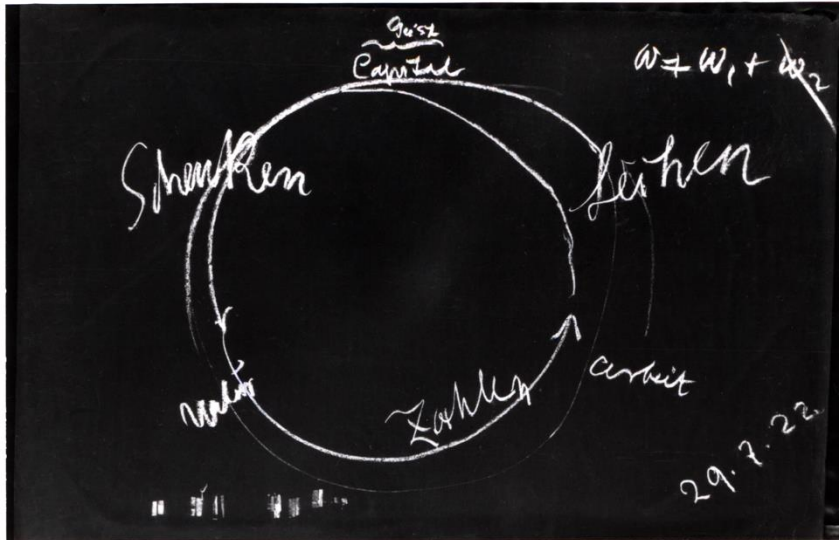 Geist
Capital
W = W₁ + W₂
Schenken
Leihen
Zahlen
arbeit
29.7.22.